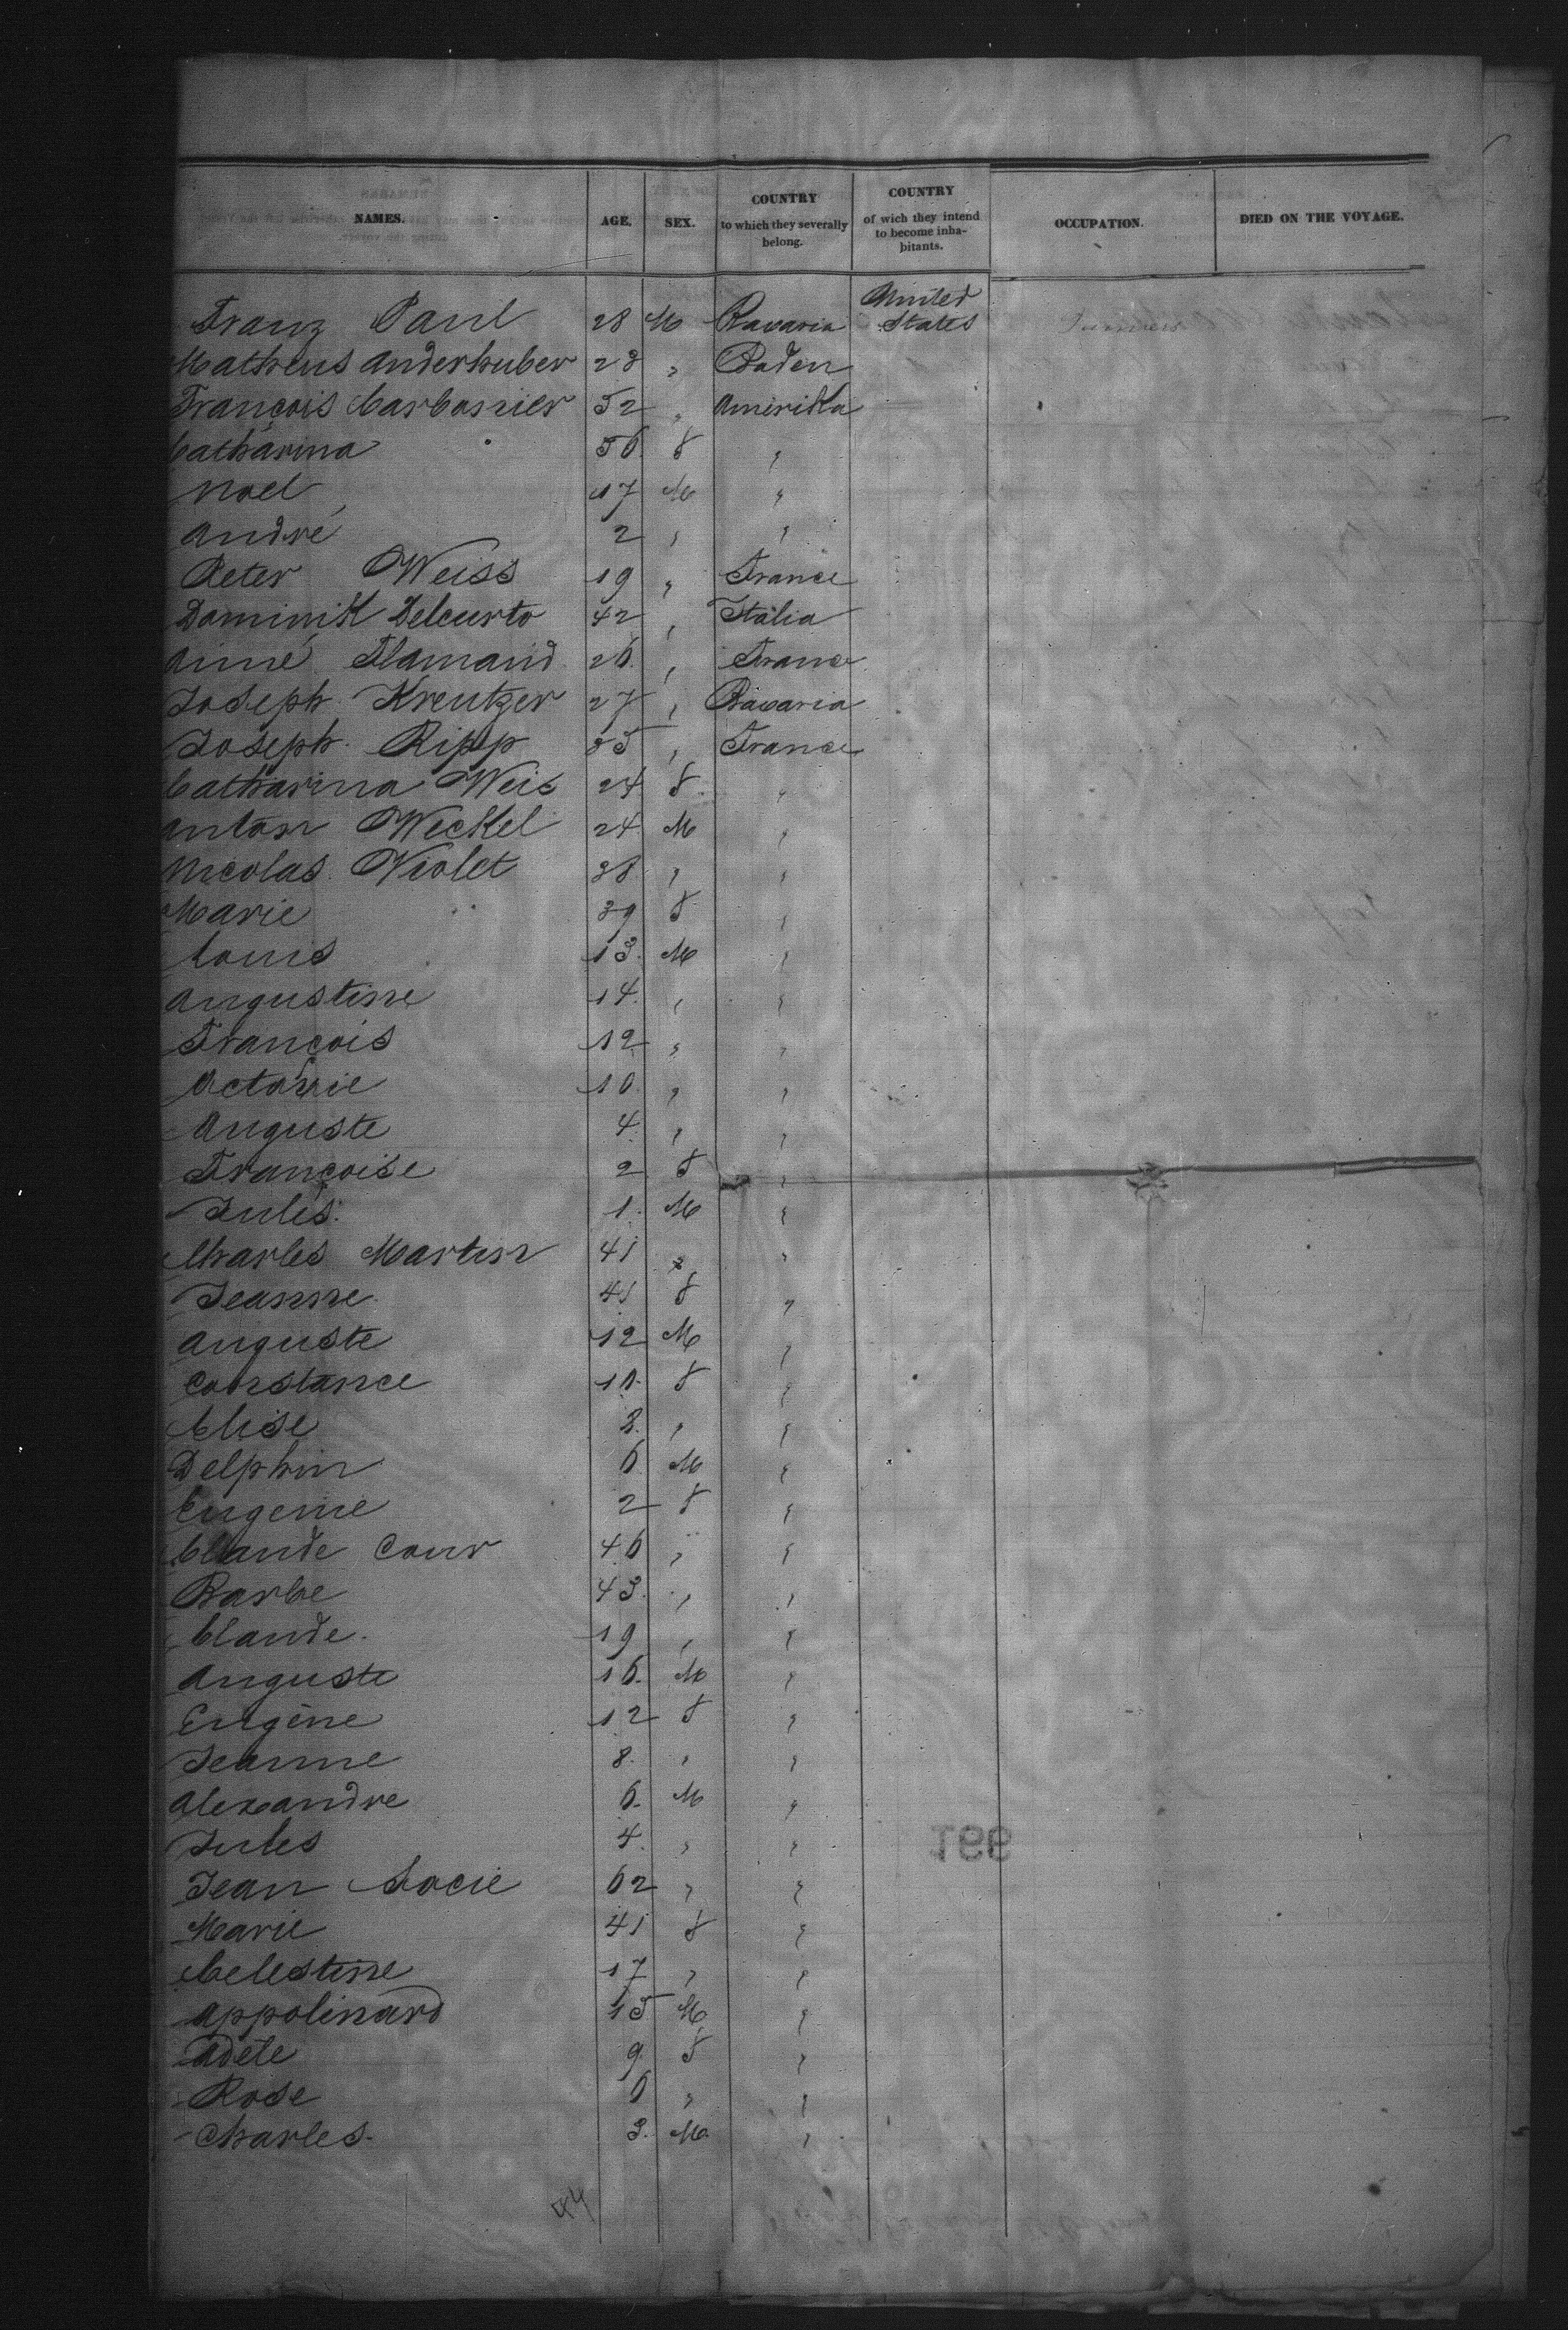 NAMES. AGE. SEX. COUNTRY to which they severally belong. COUNTRY of wich they intend to become inhabitants. OCCUPATION. DIED ON THE VOYAGE.
Franz Paul 28 M Bavaria United States Farmers
Matheus Anderhuber 28 " Baden
François Carbonnier 52 " Amerika
Catharina 56 F "
Noel 17 M "
André 2 " "
Peter Weiss 19 " France
Dominik Delcurto 42 " Italia
Aimé Flamand 26 " France
Joseph Kreutzer 27 " Bavaria
Joseph Ripp 35 " France
Catharina Weis 24 F "
Anton Weckel 24 M "
Nicolas Violet 38 " "
Marie 39 F "
Louis 13 M "
Augustine 14 " "
François 12 " "
Octavie 10 " "
Auguste 4 " "
Françoise 2 F "
Jules 1 M "
Charles Martin 41 " "
Jeanne 41 F "
Auguste 12 M "
Constance 10 F "
Elise 3 " "
Delphin 6 M "
Eugenie 2 F "
Claude Cour 46 " "
Barbe 43 " "
Claude 19 " "
Auguste 16 M "
Eugène 12 F "
Jeanne 8 " "
Alexandre 6 M "
Jules 4 " "
Jean Socie 62 " "
Marie 41 F "
Celestine 17 " "
Appolinard 15 M "
Adele 9 F "
Rose 6 " "
Charles 3 M "
44